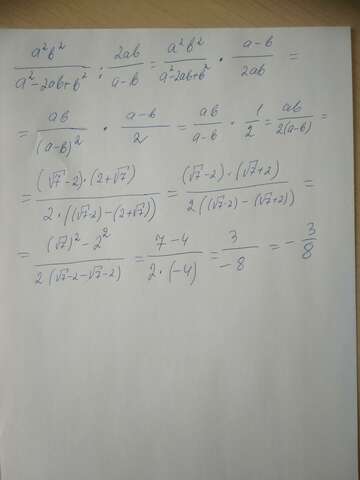 a²b² / (a²-2ab+b²) : 2ab / (a-b) = a²b² / (a²-2ab+b²) · (a-b) / 2ab =
= ab / (a-b)² · (a-b) / 2 = ab / (a-b) · 1/2 = ab / 2(a-b) =
= (√7-2)·(2+√7) / 2·((√7-2)-(2+√7)) = (√7-2)·(√7+2) / 2((√7-2)-(√7+2)) =
= (√7)²-2² / 2(√7-2-√7-2) = 7-4 / 2·(-4) = 3 / -8 = -3/8